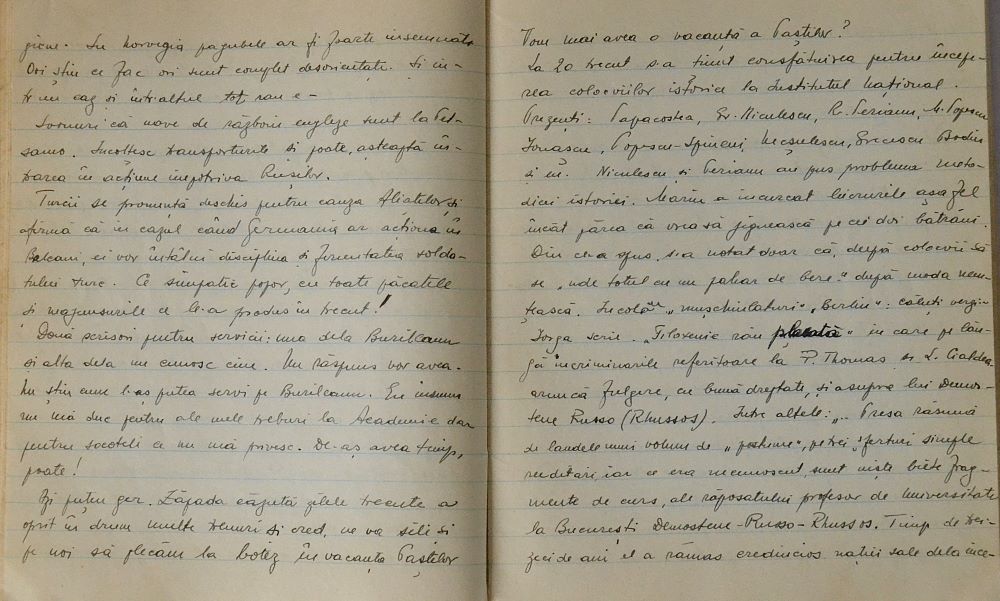 giene. In Norvegia pagubele ar fi foarte însemnate
Ori știu ce fac ori sunt complet desorientați. Și în-
tr'un caz și într'altul tot rau e -
Svonuri că nave de războiu engleze sunt la Pet-
samo. Încolțesc transporturile și poate, așteaptă in-
trarea în acțiune împotriva Rușilor.
Turcii se pronunță deschis pentru cauza Aliaților și
afirmă că în cazul când Germania ar acționa în
Balcani, ei vor întâlni disciplina și fermitatea solda-
tului turc. Ce simpatic popor, cu toate păcatele
și neajunsurile ce le-a produs în trecut!
Două scrisori pentru servicii: una dela Buzileanu
și alta dela un cunosc cine. Un răspuns vor avea.
Nu știu cum l-aș putea servi pe Buzileanu. Eu însumi
nu mă duc pentru ale mele treburi la Academie dar
pentru socoteli ce nu mă privesc. De-aș avea timp,
poate!
Azi puțin ger. Zăpada căzută zilele trecute a
oprit în drum multe trenuri și cred, ne va sili și
pe noi să plecăm la botez în vacanța Paștilor
Vom mai avea o vacanță a Paștilor?
La 20 trecut s-a ținut consfătuirea pentru încep-
rea colocviilor istorice la Institutul Național.
Prezenți: Papacostea, Em. Niculescu, R. Perianu, M. Popescu
Ionașcu, Popescu-Spineni, Meșulescu, Grecescu Brodin
și eu. Niculescu și Perianu au pus problema meto-
dicei istoriei. Marin a încurcat lucrurile așa fel
încât părea că vrea să jignească pe cei doi bătrâni
Din ce-a spus, s-a notat doar că, după colocvii să
se "ude totul cu un pahar de bere" după moda nem-
țească. "Berlin": căluți vergi-
Iorga scrie "Filoxenie rău plasată" în care pe lân-
gă incriminările referitoare la P. Thomas și L. Cialdea
aruncă fulgere, cu bună dreptate, și asupra lui Demos-
tene Russo (Rhussos). Între altele: "... Presa răsună
de laudele unui volum de "postume", petrei sferturi simple
reeditări, iar ce era necunoscut, sunt niște biete frag-
mente de curs, ale răposatului profesor de Universitate
la București Demostene-Russo-Rhussos. Timp de trei-
zeci de ani el a rămas credincios nației sale dela înce-